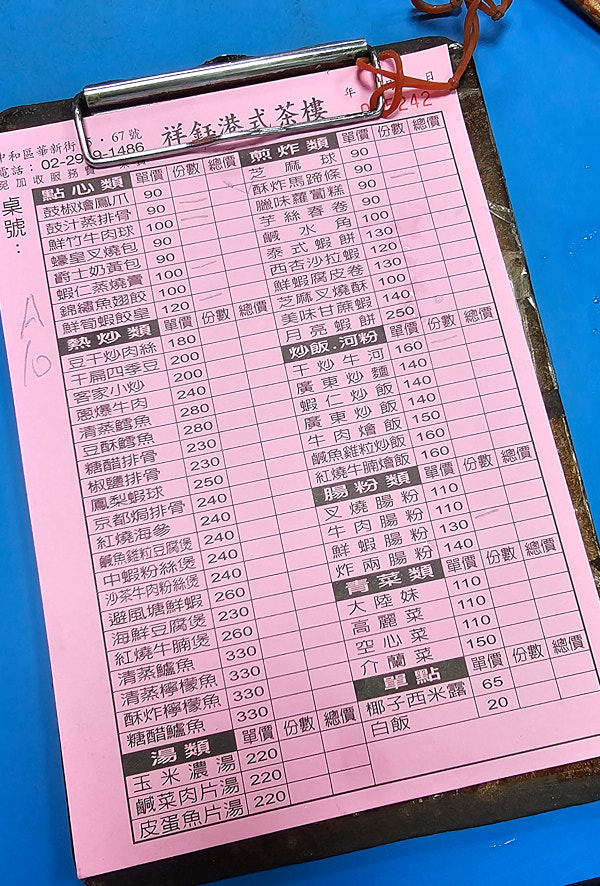 祥鈺港式茶樓
年 日
242
中和區華新街 67號
電話：02-29 9-1486
免加收服務費
桌號：
A
10
點心類 單價 份數 總價
鼓椒燴鳳爪 90
鼓汁蒸排骨 90
鮮竹牛肉球 100
蠔皇叉燒包 90
爵士奶黃包 90
蝦仁蒸燒賣 100
錦繡魚翅餃 100
鮮筍蝦餃皇 120
熱炒類 單價 份數 總價
豆干炒肉絲 180
干扁四季豆 200
客家小炒 200
蔥爆牛肉 240
清蒸鱈魚 280
豆酥鱈魚 280
糖醋排骨 230
椒鹽排骨 230
鳳梨蝦球 250
京都焗排骨 240
紅燒海參 240
鹹魚雞粒豆腐煲 240
中蝦粉絲煲 240
沙茶牛肉粉絲煲 240
避風塘鮮蝦 260
海鮮豆腐煲 230
紅燒牛腩煲 260
清蒸鱸魚 330
清蒸檸檬魚 330
酥炸檸檬魚 330
糖醋鱸魚 330
湯類 單價 份數 總價
玉米濃湯 220
鹹菜肉片湯 220
皮蛋魚片湯 220
煎炸類 單價 份數 總價
芝麻球 90
酥炸馬蹄條 90
臘味蘿蔔糕 90
芋絲春卷 90
鹹水角 100
泰式蝦餅 130
西杏沙拉蝦 120
鮮蝦腐皮卷 100
芝麻叉燒酥 100
美味甘蔗蝦 140
月亮蝦餅 250
炒飯.河粉 單價 份數 總價
干炒牛河 160
廣東炒麵 140
蝦仁炒飯 140
廣東炒飯 140
牛肉燴飯 150
鹹魚雞粒炒飯 160
紅燒牛腩燴飯 160
腸粉類 單價 份數 總價
叉燒腸粉 110
牛肉腸粉 110
鮮蝦腸粉 130
炸兩腸粉 140
青菜類 單價 份數 總價
大陸妹 110
高麗菜 110
空心菜 110
介蘭菜 150
單點 單價 份數 總價
椰子西米露 65
白飯 20